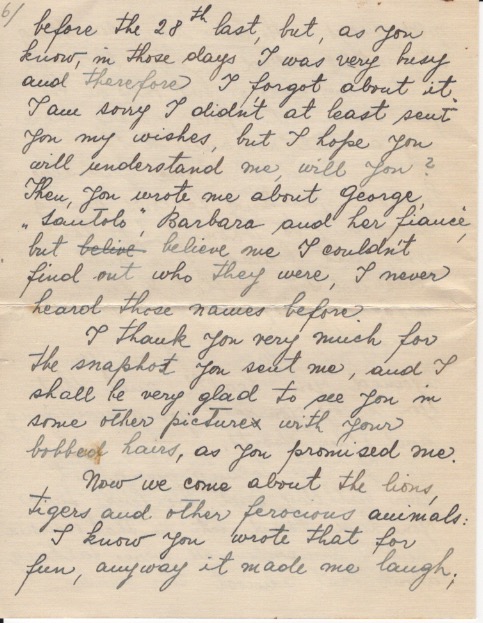 6/
before the 28th last, but, as you
know, in those days I was very busy
and therefore I forgot about it.
I am sorry I didn't at least sent
you my wishes, but I hope you
will understand me, will you?
Then, you wrote me about George,
„Santolo", Barbara and her fiancè,
but belive believe me I couldn't
find out who they were, I never
heard those names before
I thank you very much for
the snapshot you sent me, and I
shall be very glad to see you in
some other picture with your
bobbed hairs, as you promised me.
Now we come about the lions,
tigers and other ferocious animals:
I know you wrote that for
fun, anyway it made me laugh,